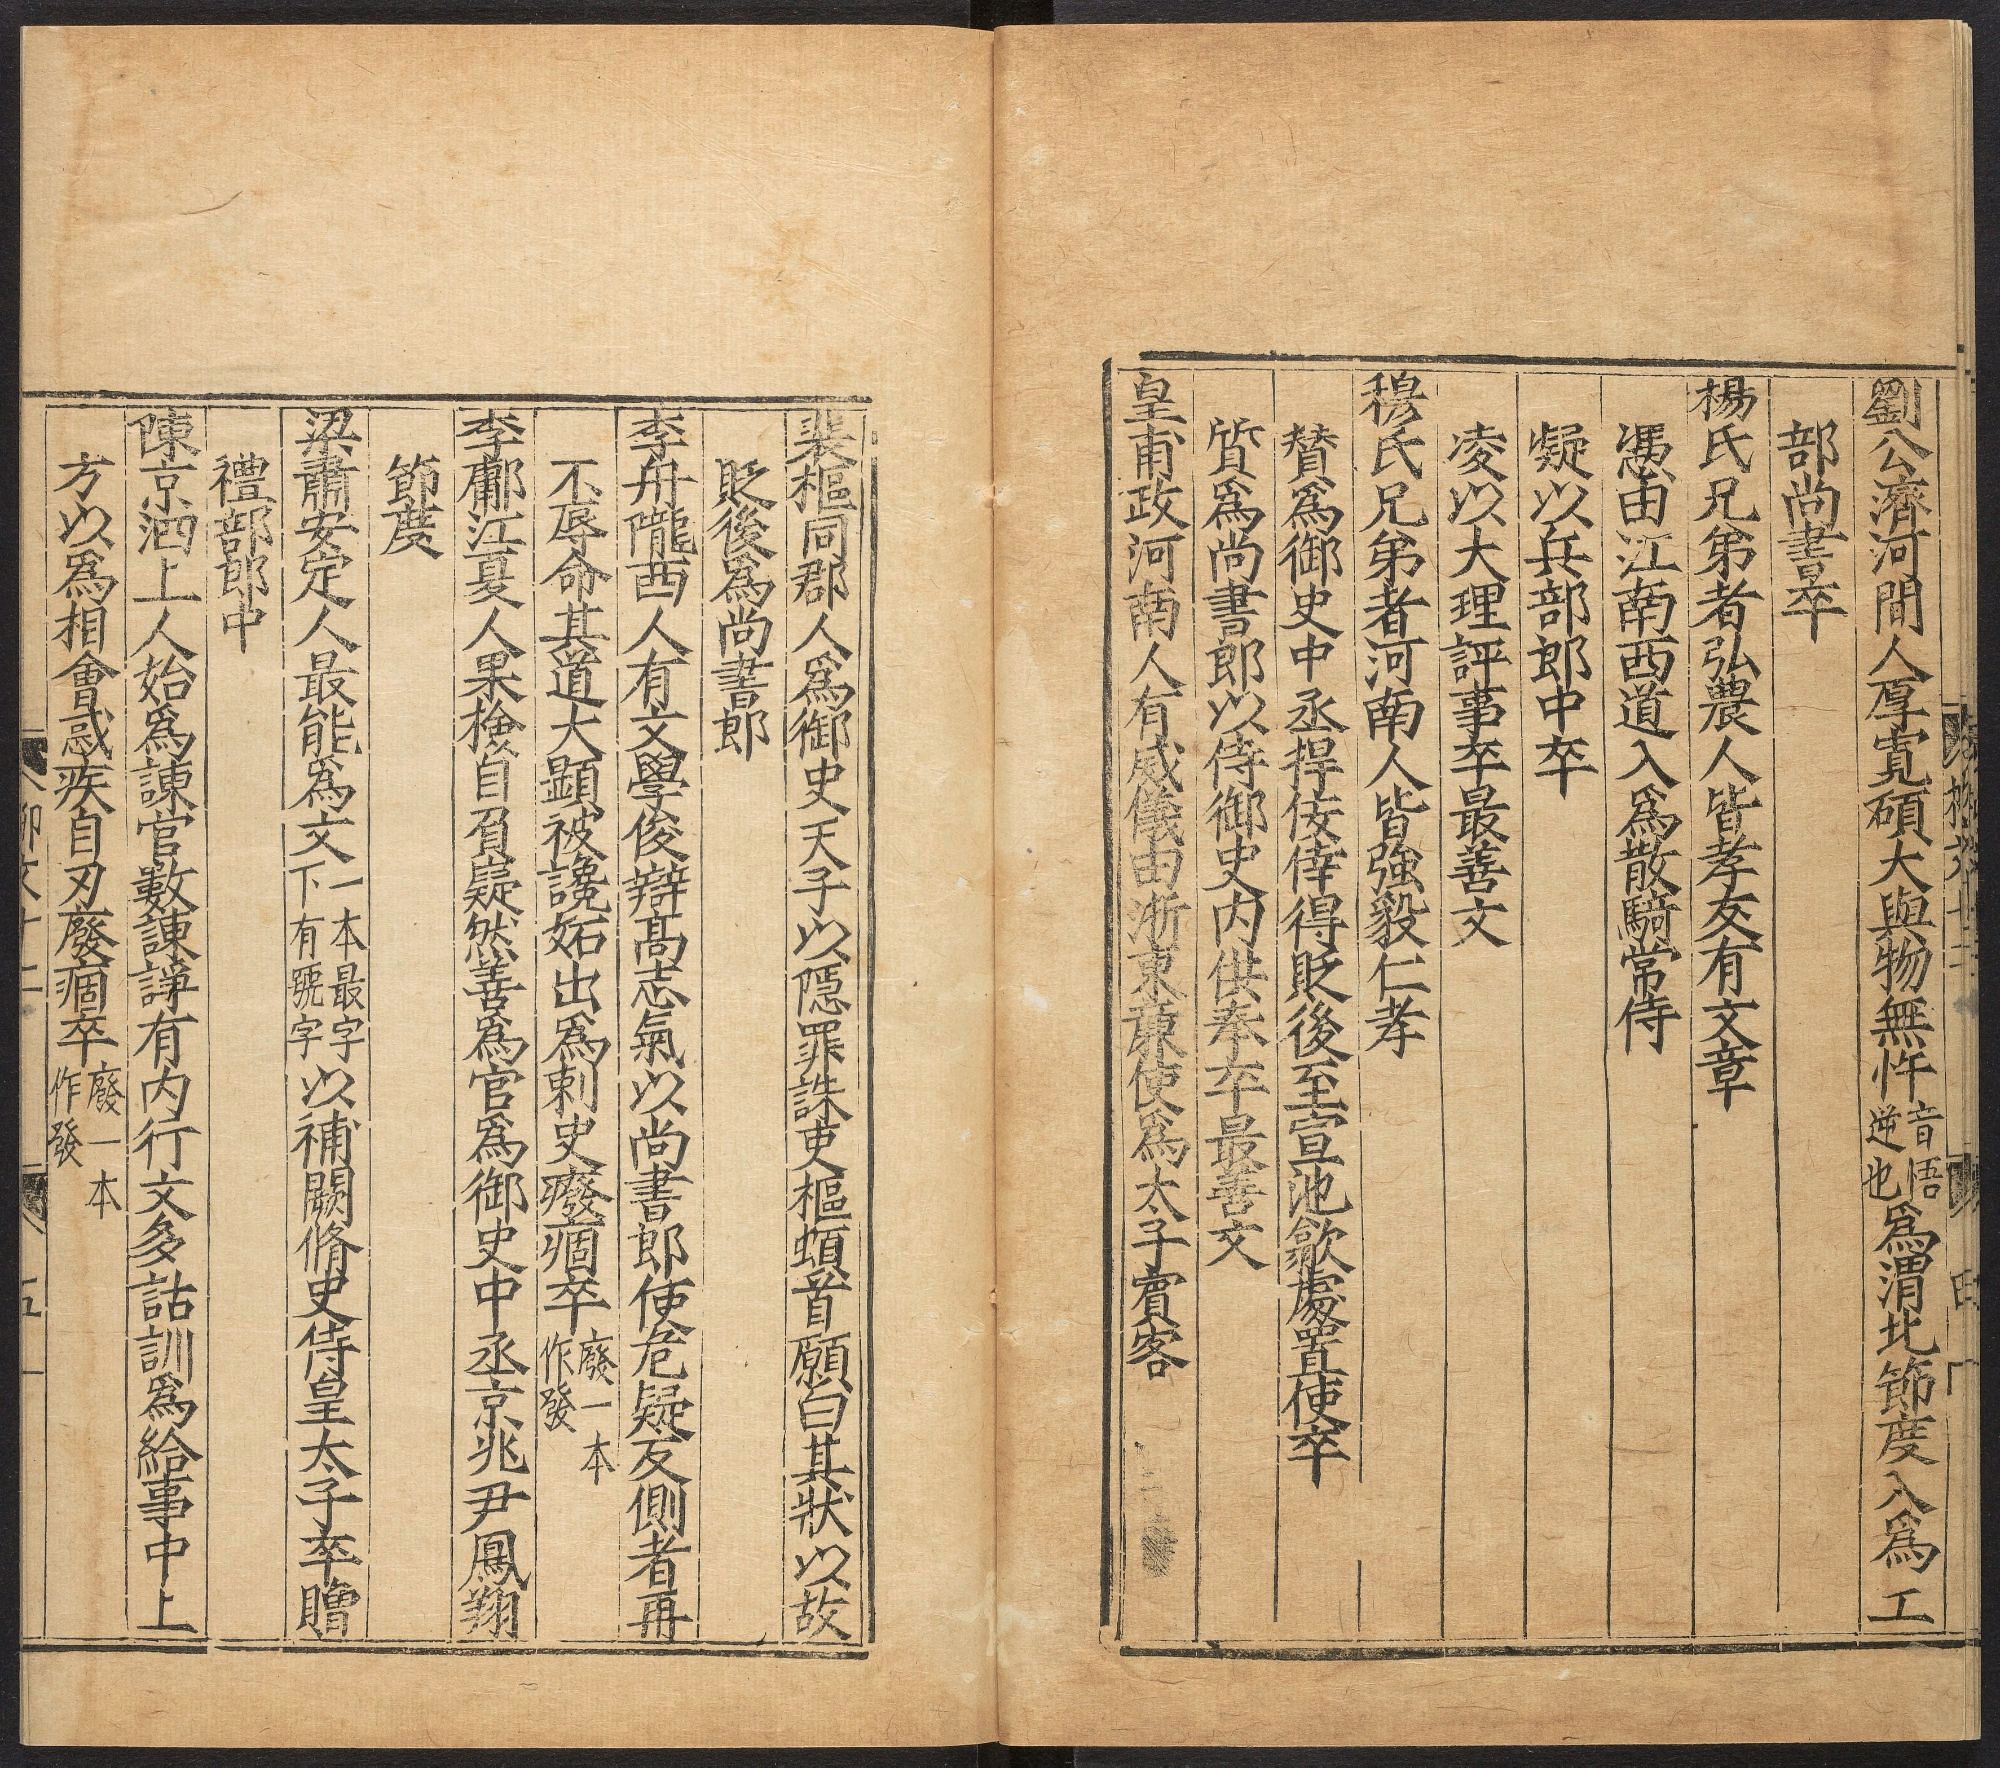 劉公濟河間人厚寬碩大與物無忤音悟逆也爲渭北節度入爲工
部尚書卒
楊氏兄弟者弘農人皆孝友有文章
憑由江南西道入爲散騎常侍
凝以兵部郎中卒
凌以大理評事卒最善文
穆氏兄弟者河南人皆強毅仁孝
贊爲御史中丞捍佞倖得貶後至宣池歙處置使卒
質爲尚書郎以侍御史内供奉卒最善文
皇甫政河南人有威儀由浙東廉使爲太子賓客
裴樞同郡人爲御史天子以隱罪誅吏樞頓首願白其狀以故
貶後爲尚書郎
李舟隴西人有文學俊辯高志氣以尚書郎使危疑反側者再
不辱命其道大顯被讒妬出爲刺史癈痼卒廢一本作發
李鄘江夏人果檢自負嶷然善爲官爲御史中丞京兆尹鳳翔
節度
梁肅安定人最能爲文一本最字下有號字以補闕脩史侍皇太子卒贈
禮部郎中
陳京泗上人始爲諫官數諫諍有内行文多詁訓爲給事中上
方以爲相會惑疾自刃廢痼卒廢一本作發
柳文十二
五